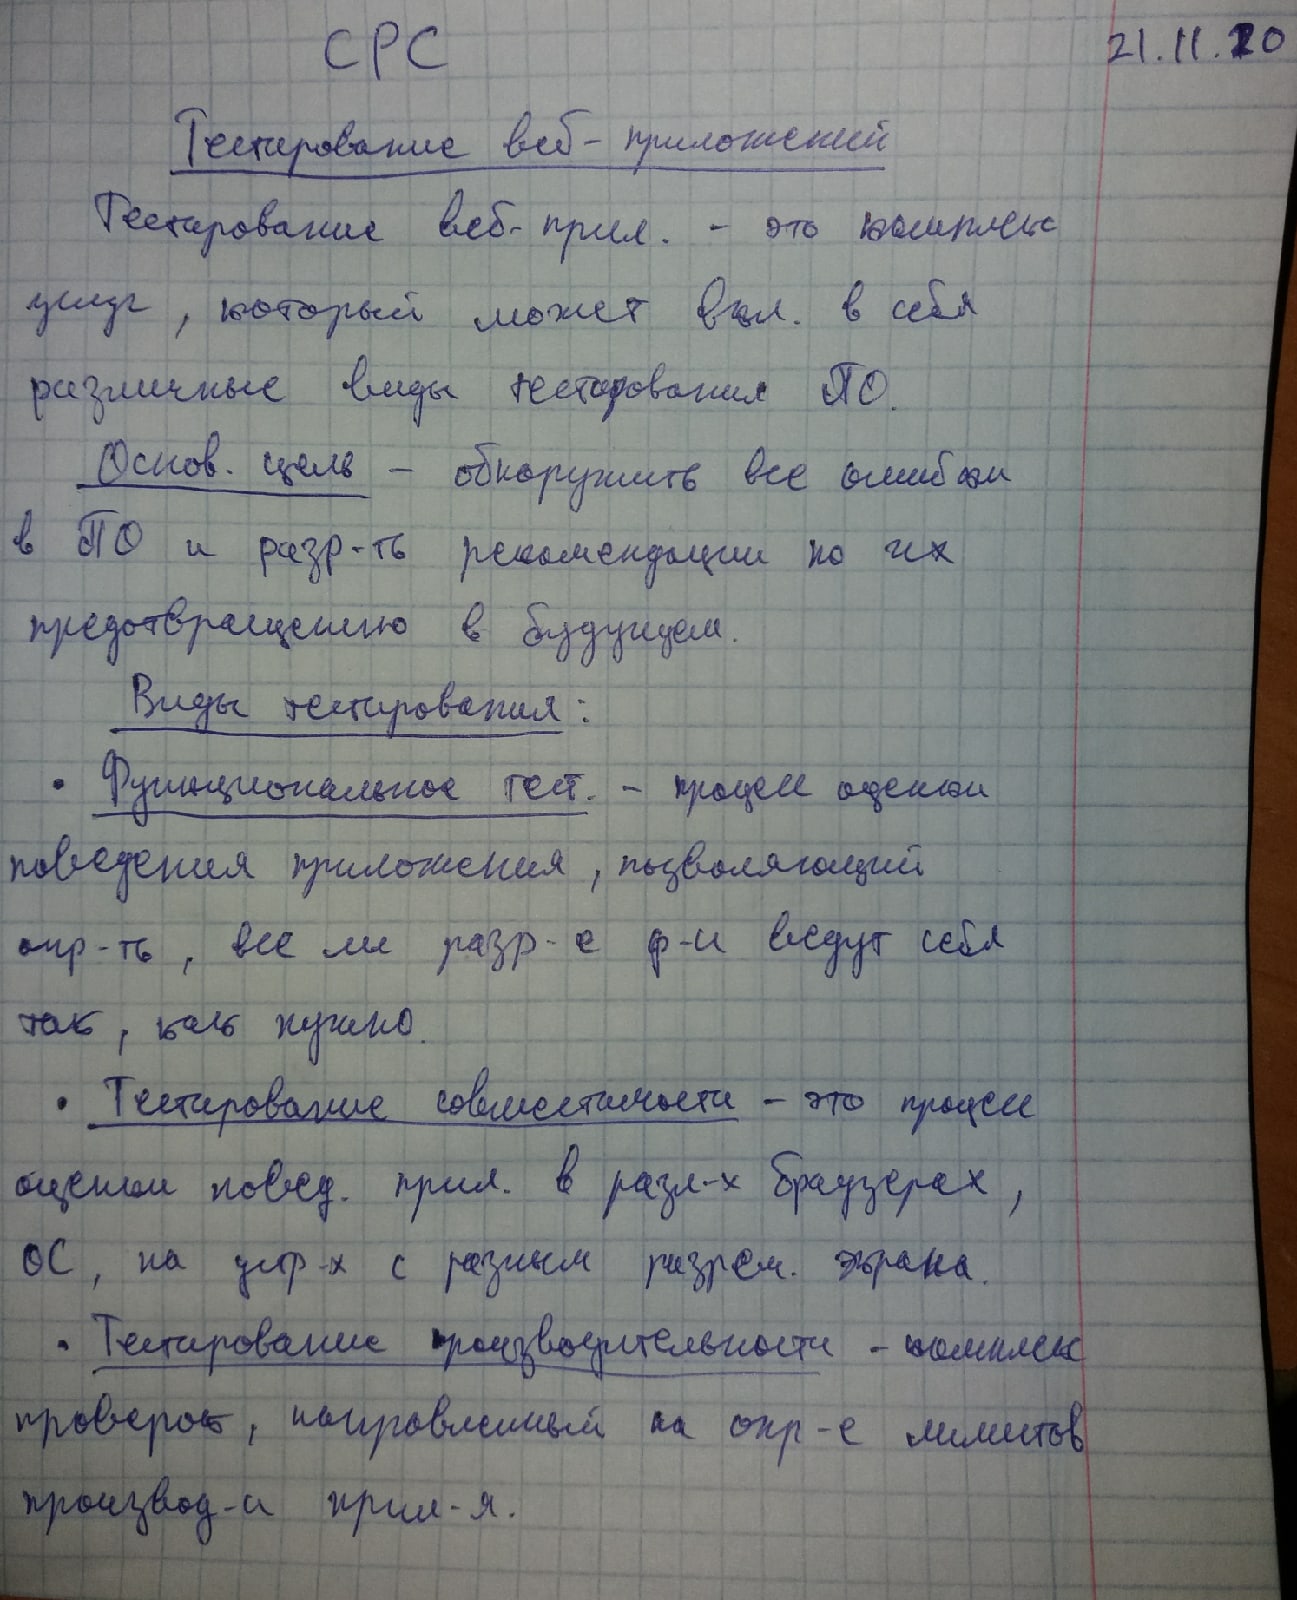 СРС
21.11.20
Тестирование веб-приложений
Тестирование веб-прил. - это комплекс
услуг, который может вкл. в себя
различные виды тестирования ПО.
Основ. цель - обнаружить все ошибки
в ПО и разр-ть рекомендации по их
предотвращению в будущем.
Виды тестирования:
• Функциональное тест. - процесс оценки
поведения приложения, позволяющий
опр-ть, все ли разр-е ф-и ведут себя
так, как нужно.
• Тестирование совместимости - это процесс
оценки повед. прил. в разл-х браузерах,
ОС, на устр-х с разным разреш. экрана.
• Тестирование производительности - комплекс
проверок, направленный на опр-е лимитов
производ-и прил-я.